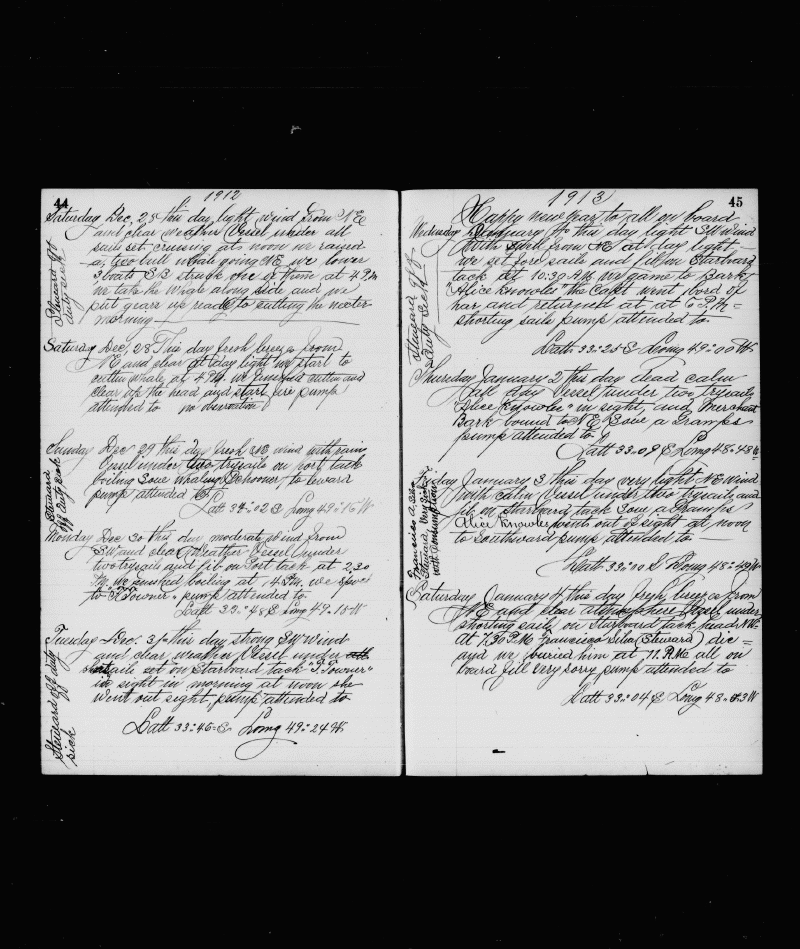 44
1912
Saturday Dec, 25 this day light wind from NE
and clear weather Vessel under all
sail set cruising at noon we raised
a two bull whals going NE we lower
3 boats S B struck one of them at 4 P.M
we take the whale along side and we
put gears up ready to cutting the
morning
Steward off
duty sick
Saturday Dec, 28 This day fresh breeze from
NE and clear at day light we start to
cutten whale at 4 P.M. we finished cutten and
clear off the head and start fire pump
attended to no
Sunday Dec 29 this day fresh NE wind with rain
Vessel under two trysails on port tack
boiling Saw Whaling Schooner to leward
pump attended to
Latt 34:02 S Long 49:15 W
Steward
off duty sick
Monday Dec 30 this day moderate wind from
SW and clear Weather Vessel under
two trysails and jib on Port tack at 2,30
P.M. we finished boiling at 4 P.M. we
to "F. Towner" pump attended to
Latt 33:48 S Long 49:15 W
Tuesday Dec. 31 this day strong SW Wind
and clear weather Vessel under
sails set on Starboard tack "F. Towner"
in sight in morning at noon she
went out sight, pump attended to
Latt 33:46 S Long 49:24 W
Steward off duty
sick
1913
45
Happy new year to all on board
Wednesday January 1 this day light SW wind
with swell from NE at day light
we set fore sails and jib on Starboard
tack at 10:30 A.M. we game to Bark
"Alice Knowles" the Capt went bord of
har and returned at at 6 P.M. =
shorting sails pump attended to
Latt 33:25 S Long 49:00 W
Steward off
Duty Sick
Thursday January 2 this day dead calm
all day Vessel under two trysails
"Alice Knowles" in sight, and Merchant
Bark bound to NE Saw a Gramps
pump attended to
Latt 33.09 S Long 48:48 W
Friday January 3 this day very light NE Wind
with calm Vessel under two trysails and
jib on Starbord tack Saw a Gramps
Alice Knowles went out of sight at noon
to Southward pump attended to
Latt 33:10 S Long 48:49 W
Francisco
Steward, Very Sick
with Consumption
Saturday January 4 this day fresh breezes from
NE and clear athmosphere Vessel under
shorting sails on Starboard tack heads NW.
at 7,30 P.M. Francisco Silva (Steward) die =
and we buried him at 11. P.M. all on
board fill very sorry pump attended to
Latt 33:04 S Long 48:03 W